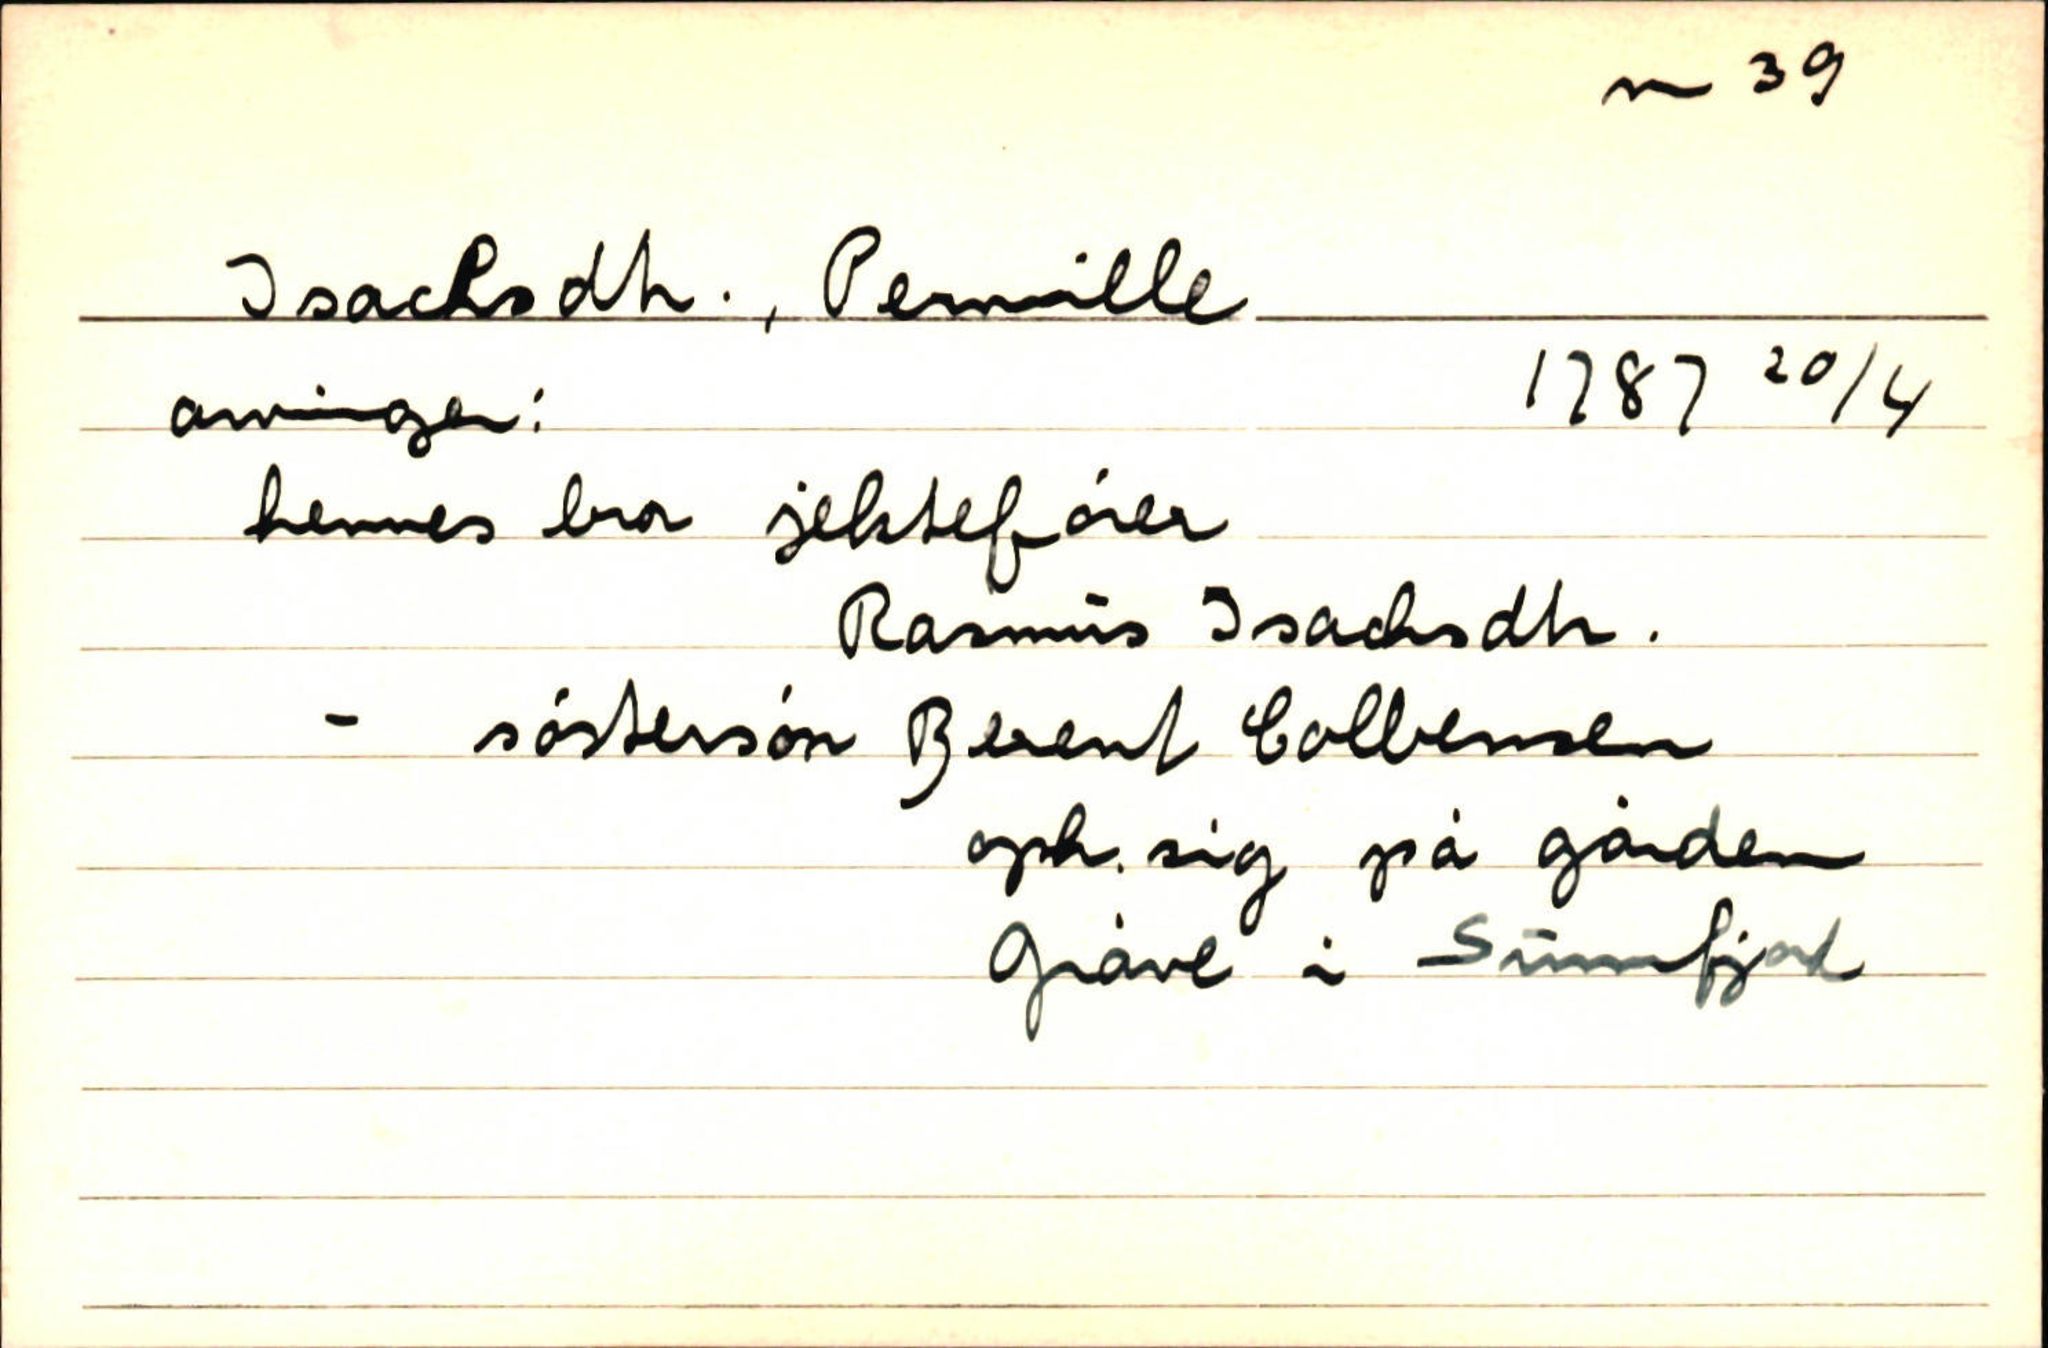 n 39
Isachsdtr., Pernille
1787 20/4
arvinger:
hennes bror jekteförer
Rasmus Isachsdtr.
- söstersön Berent Colbensen
oph. sig på gården
Gråve i Sunnfjord